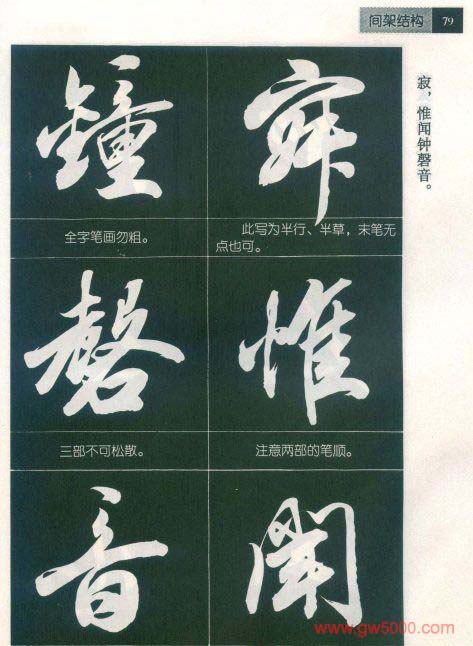 间架结构 79
寂，惟闻钟磬音。
寂
此写为半行、半草，末笔无
点也可。
惟
注意两部的笔顺。
聞
鐘
全字笔画勿粗。
磬
三部不可松散。
音
www.gw5000.com